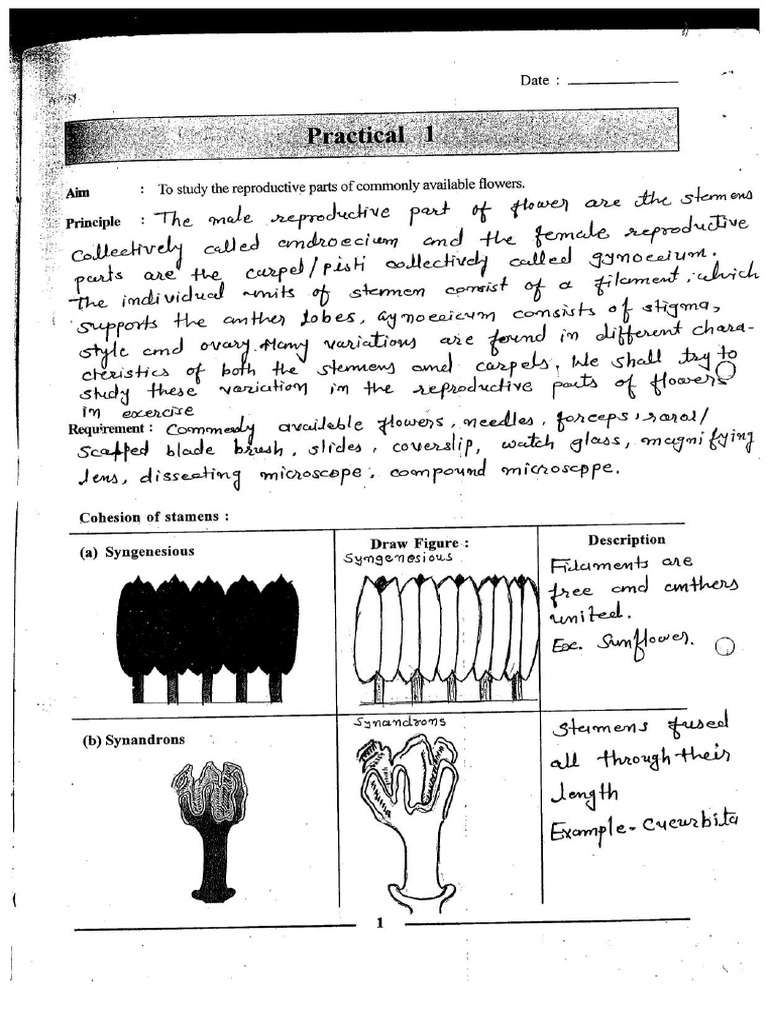 Date :
Practical 1
Aim : To study the reproductive parts of commonly available flowers.
Principle : The male reproductive part of flower are the stemens
collectively called androecium and the female reproductive
parts are the carpel/pisti collectively called gynoecium.
The individual units of stemen consist of a filament, which
supports the anther lobes, Gynoecium consists of stigma,
style and ovary. Many variations are found in different chara-
cteristics of both the stemens and carpels, We shall try to
study these variation in the reproductive parts of flowers
in exercise
Requirement : Commenly available flowers, needles, forceps,
blade brush, slides, coverslip, watch glass, magnifying
lens, dissecting microscope, compound microscope.
Cohesion of stamens :
(a) Syngenesious
Draw Figure :
Syngenesious
Description
Filaments are
free and anthers
united.
Ex. Sunflower.
(b) Synandrons
Synandrons
Stemens fused
all through their
length
Example - Cucurbita
1